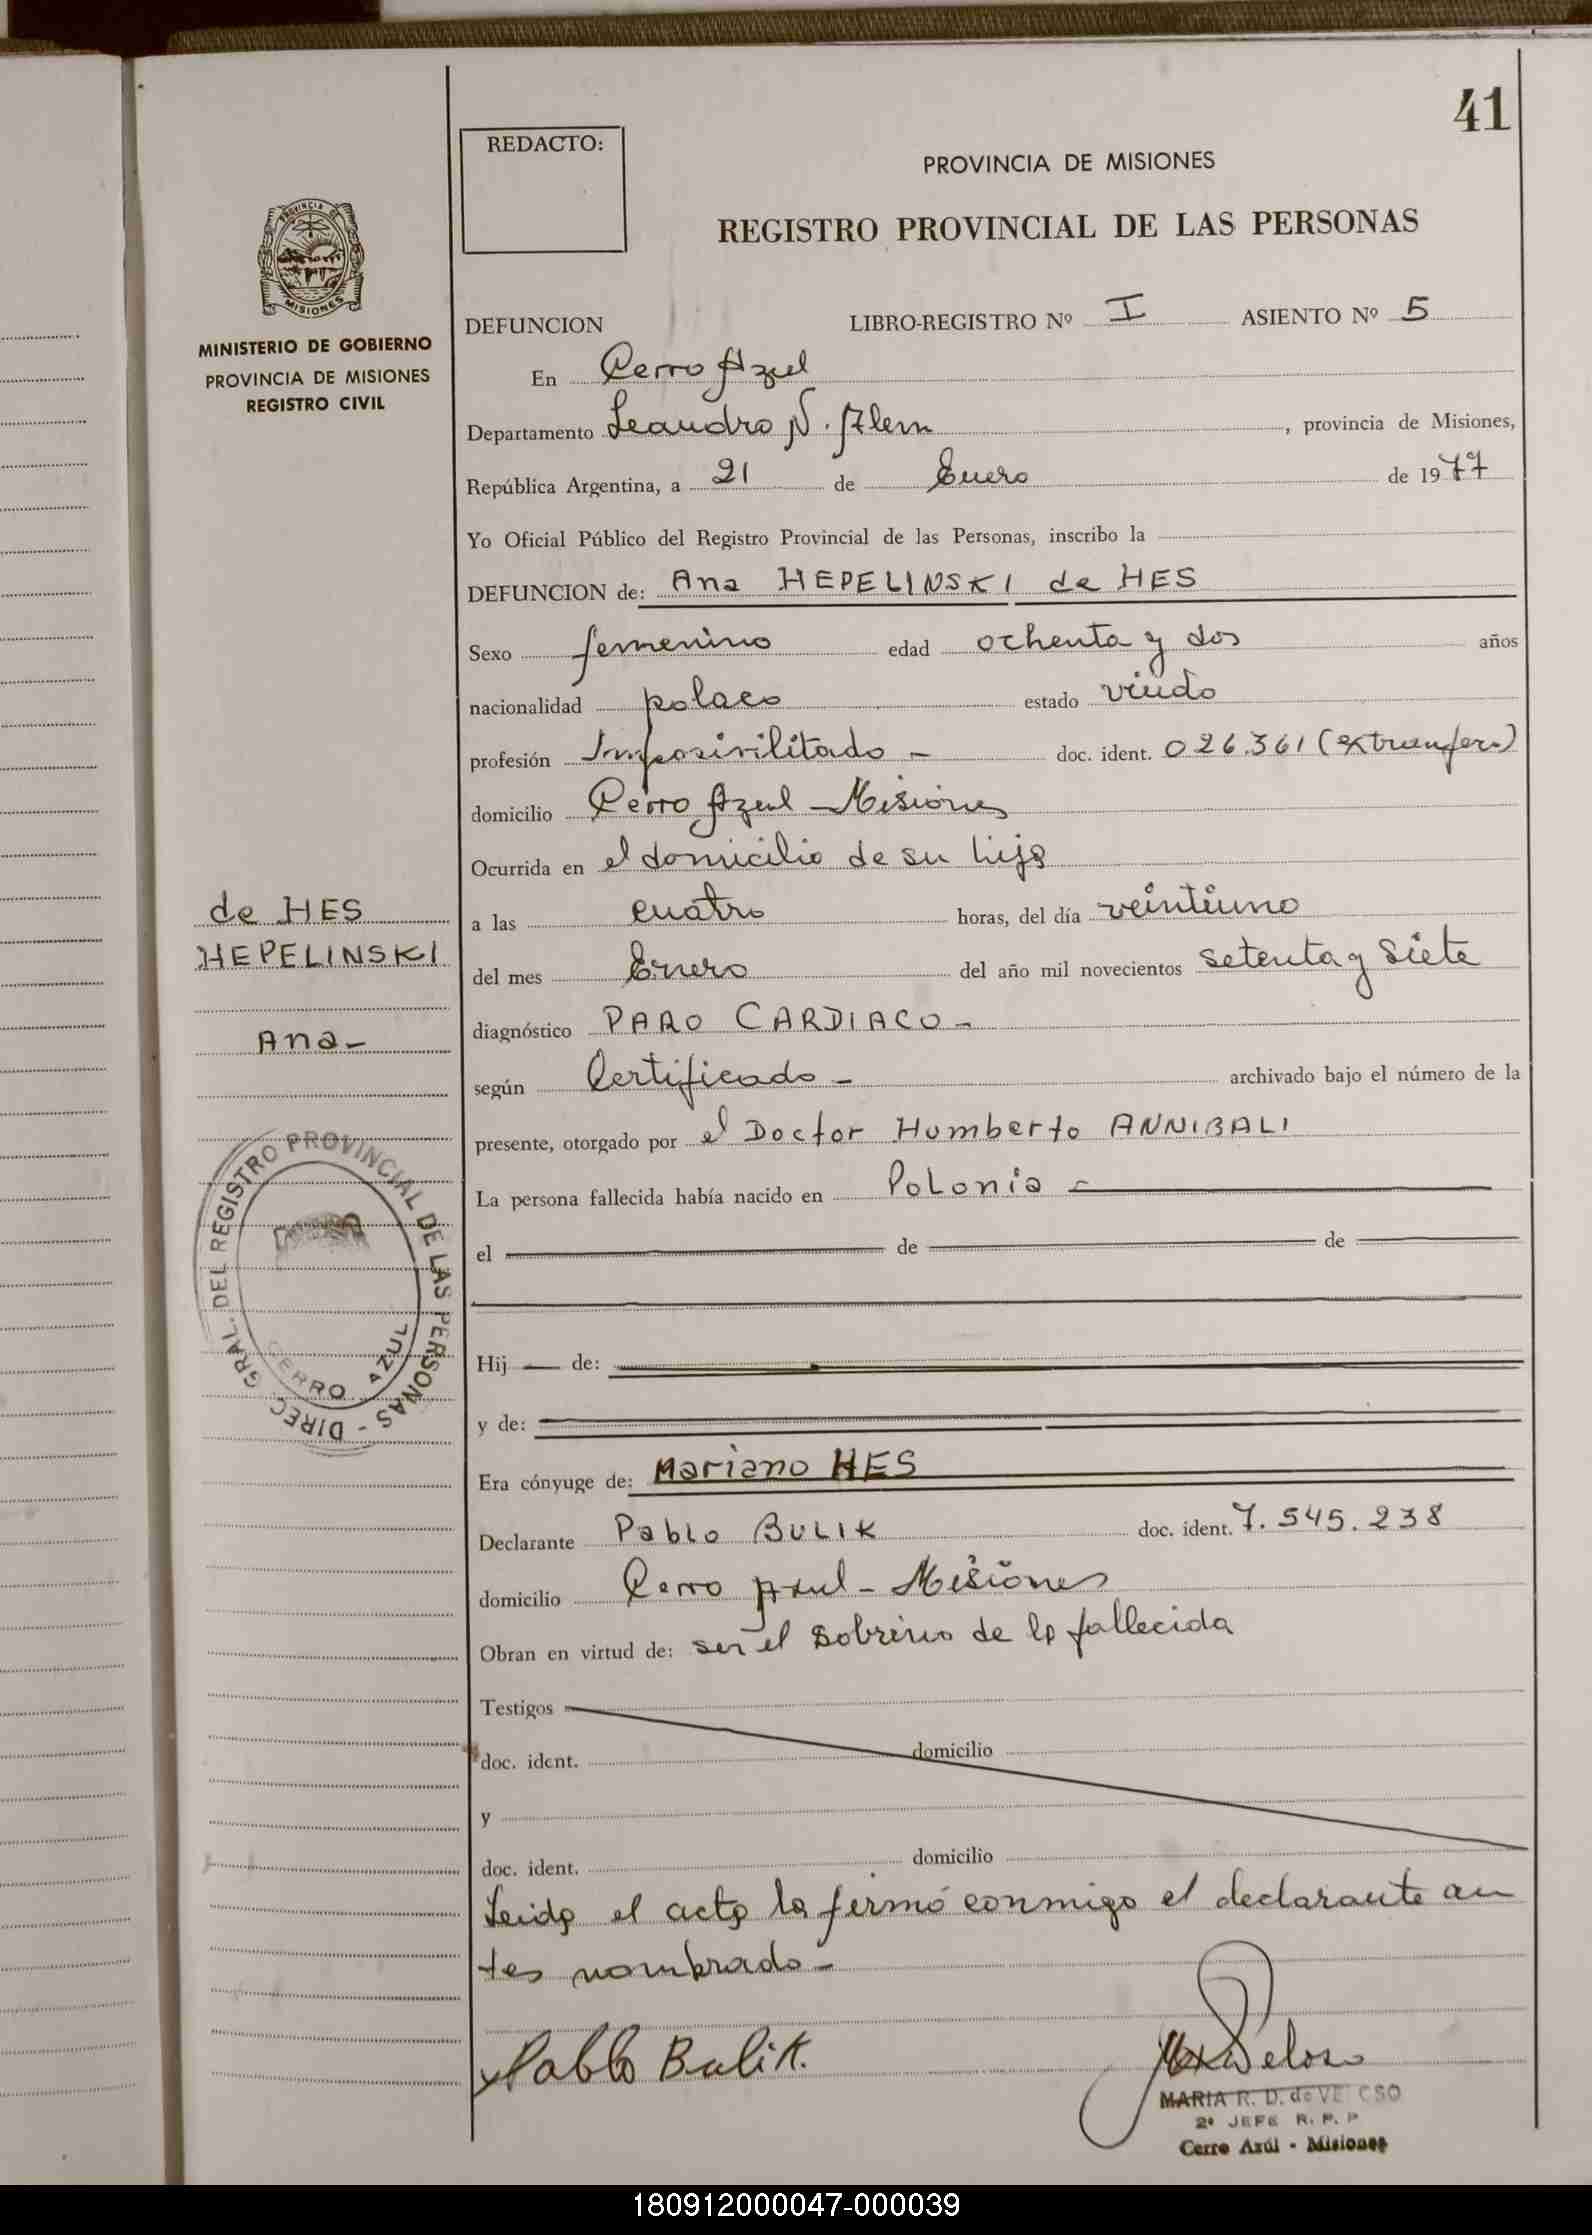 41
REDACTO:
PROVINCIA DE MISIONES
REGISTRO PROVINCIAL DE LAS PERSONAS
PROVINCIA DE
MISIONES
MINISTERIO DE GOBIERNO
PROVINCIA DE MISIONES
REGISTRO CIVIL
DEFUNCION LIBRO-REGISTRO Nº I ASIENTO Nº 5
En Cerro Azul
Departamento Leandro N. Alem, provincia de Misiones,
República Argentina, a 21 de Enero de 1977
Yo Oficial Público del Registro Provincial de las Personas, inscribo la
DEFUNCION de: Ana HEPELINSKI de HES
Sexo femenino edad ochenta y dos años
nacionalidad polaco estado viudo
profesión Imposivilitado - doc. ident. 026.361 (extranjer.)
domicilio Cerro Azul - Misiones
Ocurrida en el domicilio de su hijo
a las cuatro horas, del día veintiuno
del mes Enero del año mil novecientos setenta y siete
diagnóstico PARO CARDIACO -
según Certificado - archivado bajo el número de la
presente, otorgado por el Doctor Humberto ANNIBALI
La persona fallecida había nacido en Polonia -
el de de
Hij de:
y de:
Era cónyuge de: Mariano HES
Declarante Pablo BULIK doc. ident. 7.545.238
domicilio Cerro Azul - Misiones
Obran en virtud de: ser el sobrino de la fallecida
Testigos
doc. ident. domicilio
y
doc. ident. domicilio
Leido el acta la firmó conmigo el declarante an
tes nombrado -
de HES
HEPELINSKI
Ana -
DIREC. GRAL. DEL REGISTRO PROVINCIAL DE LAS PERSONAS -
CERRO AZUL
Pablo Bulik.
MARIA R. D. de VELOSO
2º JEFE R. P. P
Cerro Azúl - Misiones
180912000047-000039